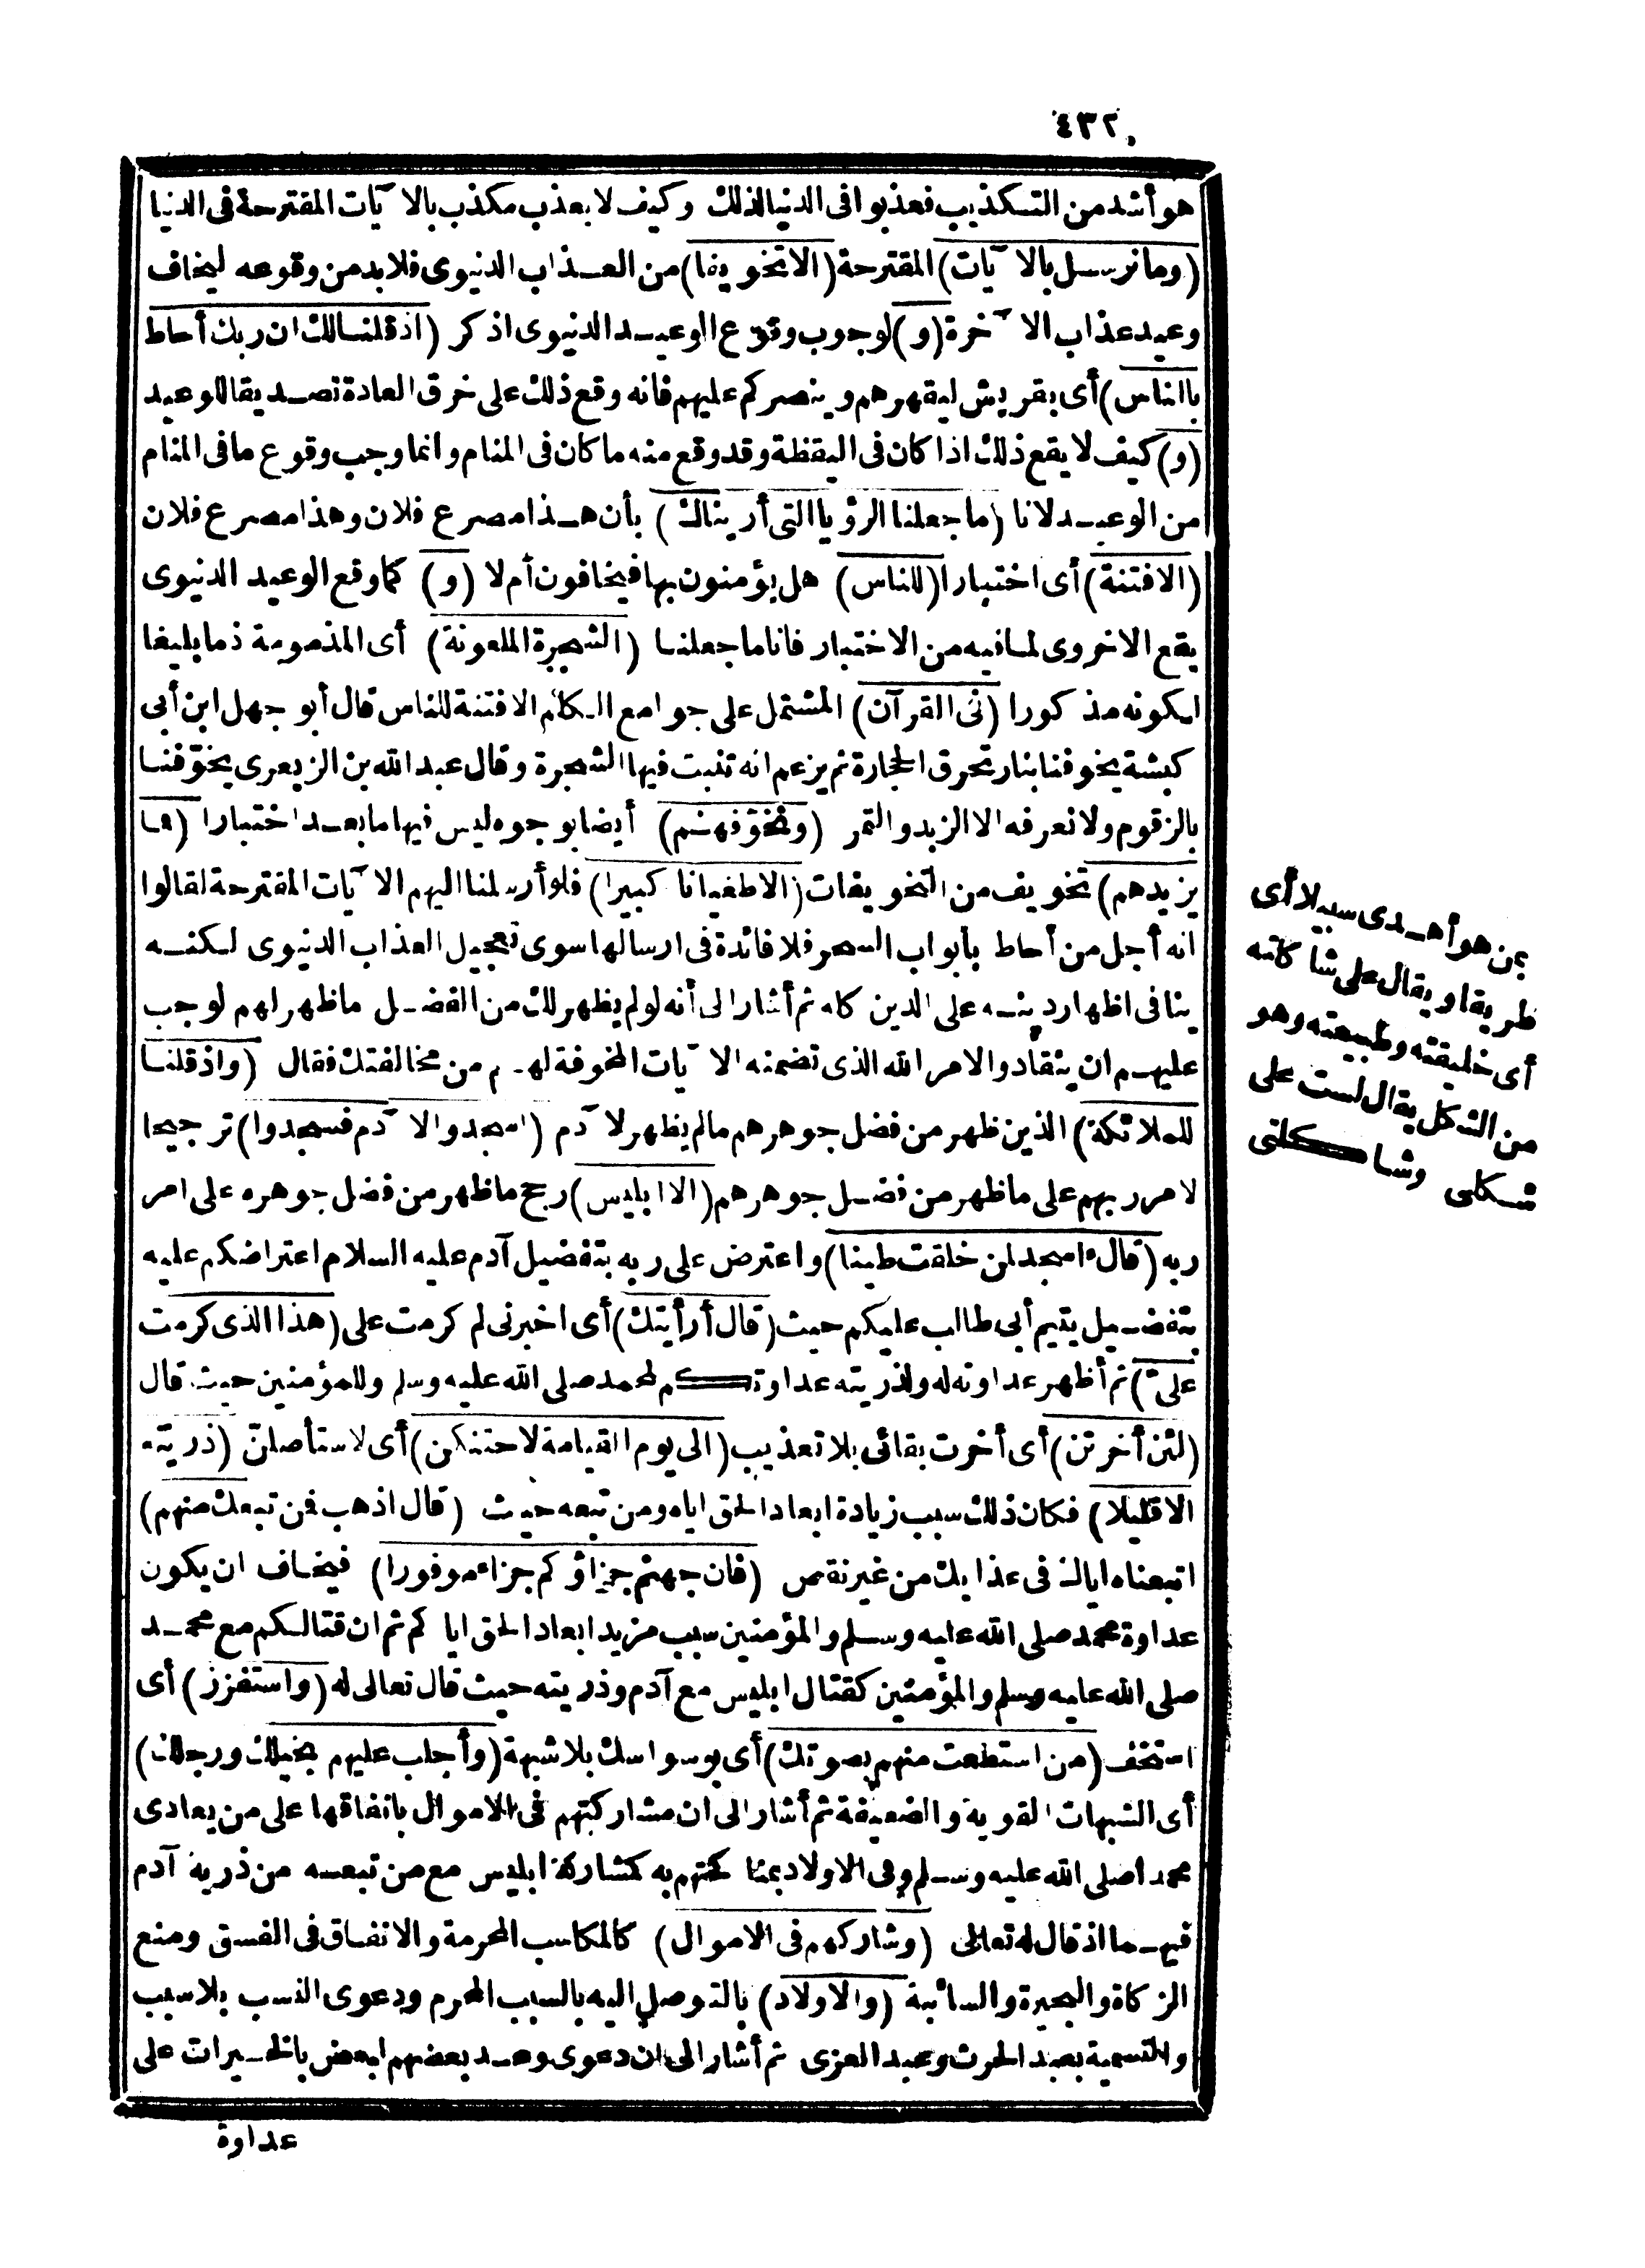 ٤٣٢
هو أشد من التكذيب فعذبوا فى الدنيا لذلك وكيف لا يعذب مكذب بالآيات المقترحة فى الدنيا
(وما نرسل بالآيات) المقترحة (الا تخويفا) من العذاب الدنيوى فلا بد من وقوعه ليخاف
وعيد عذاب الآخرة (و) لوجوب وقوع الوعيد الدنيوى اذكر (اذ قلنا لك ان ربك أحاط
بالناس) أى بقريش ليقهرهم وينصركم عليهم فانه وقع ذلك على خرق العادة تصديقا للوعيد
(و) كيف لا يقع ذلك اذا كان فى اليقظة وقد وقع منه ما كان فى المنام وانما وجب وقوع ما فى المنام
من الوعيد لانا (ما جعلنا الرؤيا التى أريناك) بأن هذا مصرع فلان وهذا مصرع فلان
(الا فتنة) أى اختبارا (للناس) هل يؤمنون بها فيخافون أم لا (و) كما وقع الوعيد الدنيوى
يقع الاخروى لما فيه من الاختبار فانا ما جعلنا (الشجرة الملعونة) أى المذمومة ذما بليغا
لكونه مذكورا (فى القرآن) المشتمل على جوامع الكلام الا فتنة للناس قال أبو جهل ابن أبى
كبشة يخوفنا بنار تحرق الحجارة ثم يزعم انه تنبت فيها الشجرة وقال عبد الله بن الزبعرى يخوّفنا
بالزقوم ولا نعرفه الا الزبد والتمر (ونخوّفهم) أيضا بوجوه ليس فيها ما بعد اختبارا (فما
يزيدهم) تخويف من التخويفات (الا طغيانا كبيرا) فلو أرسلنا اليهم الآيات المقترحة لقالوا
انه أجل من أحاط بأبواب السحر فلا فائدة فى ارسالها سوى تعجيل العذاب الدنيوى لكنه
ينافى اظهار دينه على الدين كله ثم أشار الى أنه لو لم يظهر لك من الفضل ما ظهر لهم لوجب
عليهم ان ينقادوا لامر الله الذى تضمنه الآيات المخوفة لهم من مخالفتك فقال (واذ قلنا
للملائكة) الذين ظهر من فضل جوهرهم ما لم يظهر لآدم (اسجدوا لآدم فسجدوا) ترجيحا
لامر ربهم على ما ظهر من فضل جوهرهم (الا ابليس) رجح ما ظهر من فضل جوهره على امر
ربه (قال ءاسجد لمن خلقت طينا) واعترض على ربه بتفضيل آدم عليه السلام اعتراضكم عليه
بتفضيل يتيم أبى طالب عليكم حيث (قال أرأيتك) أى اخبرنى لم كرمت على (هذا الذى كرمت
علىّ) ثم أظهر عداوته له ولذريته عداوتكم لمحمد صلى الله عليه وسلم وللمؤمنين حيث قال
(لئن أخرتن) أى أخرت بقائى بلا تعذيب (الى يوم القيامة لاحتنكن) أى لاستأصلنّ (ذريته
الا قليلا) فكان ذلك سبب زيادة ابعاد الحق اياه ومن تبعه حيث (قال اذهب فمن تبعك منهم)
اتبعناه اياك فى عذابك من غير نقص (فان جهنم جزاؤكم جزاء موفورا) فيخاف ان يكون
عداوة محمد صلى الله عليه وسلم والمؤمنين سبب مزيد ابعاد الحق اياكم ثم ان قتالكم مع محمد
صلى الله عليه وسلم والمؤمنين كقتال ابليس مع آدم وذريته حيث قال تعالى له (واستفزز) أى
استخف (من استطعت منهم بصوتك) أى بوسواسك بلا شبهة (وأجلب عليهم بخيلك ورجلك)
أى الشبهات القوية والضعيفة ثم أشار الى ان مشاركتهم فى الاموال بانفاقها على من يعادى
محمدا صلى الله عليه وسلم وفى الاولاد بمنا كحتهم به كمشاركة ابليس مع من تبعه من ذرية آدم
فيهما اذ قال له تعالى (وشاركهم فى الاموال) كالمكاسب المحرمة والانفاق فى الفسق ومنع
الزكاة والبحيرة والسائبة (والاولاد) بالتوصل اليه بالسبب المحرم ودعوى النسب بلا سبب
والتسمية بعبد الحرث وعبد العزى ثم أشار الى ان دعوى وعد بعضهم لبعض بالخيرات على
عداوة
بمن هو أهدى سبيلا أى
طريقا ويقال على شاكلته
أى خليقته وطبيعته وهو
من الشكل يقال لست على
شكلى وشاكلتى